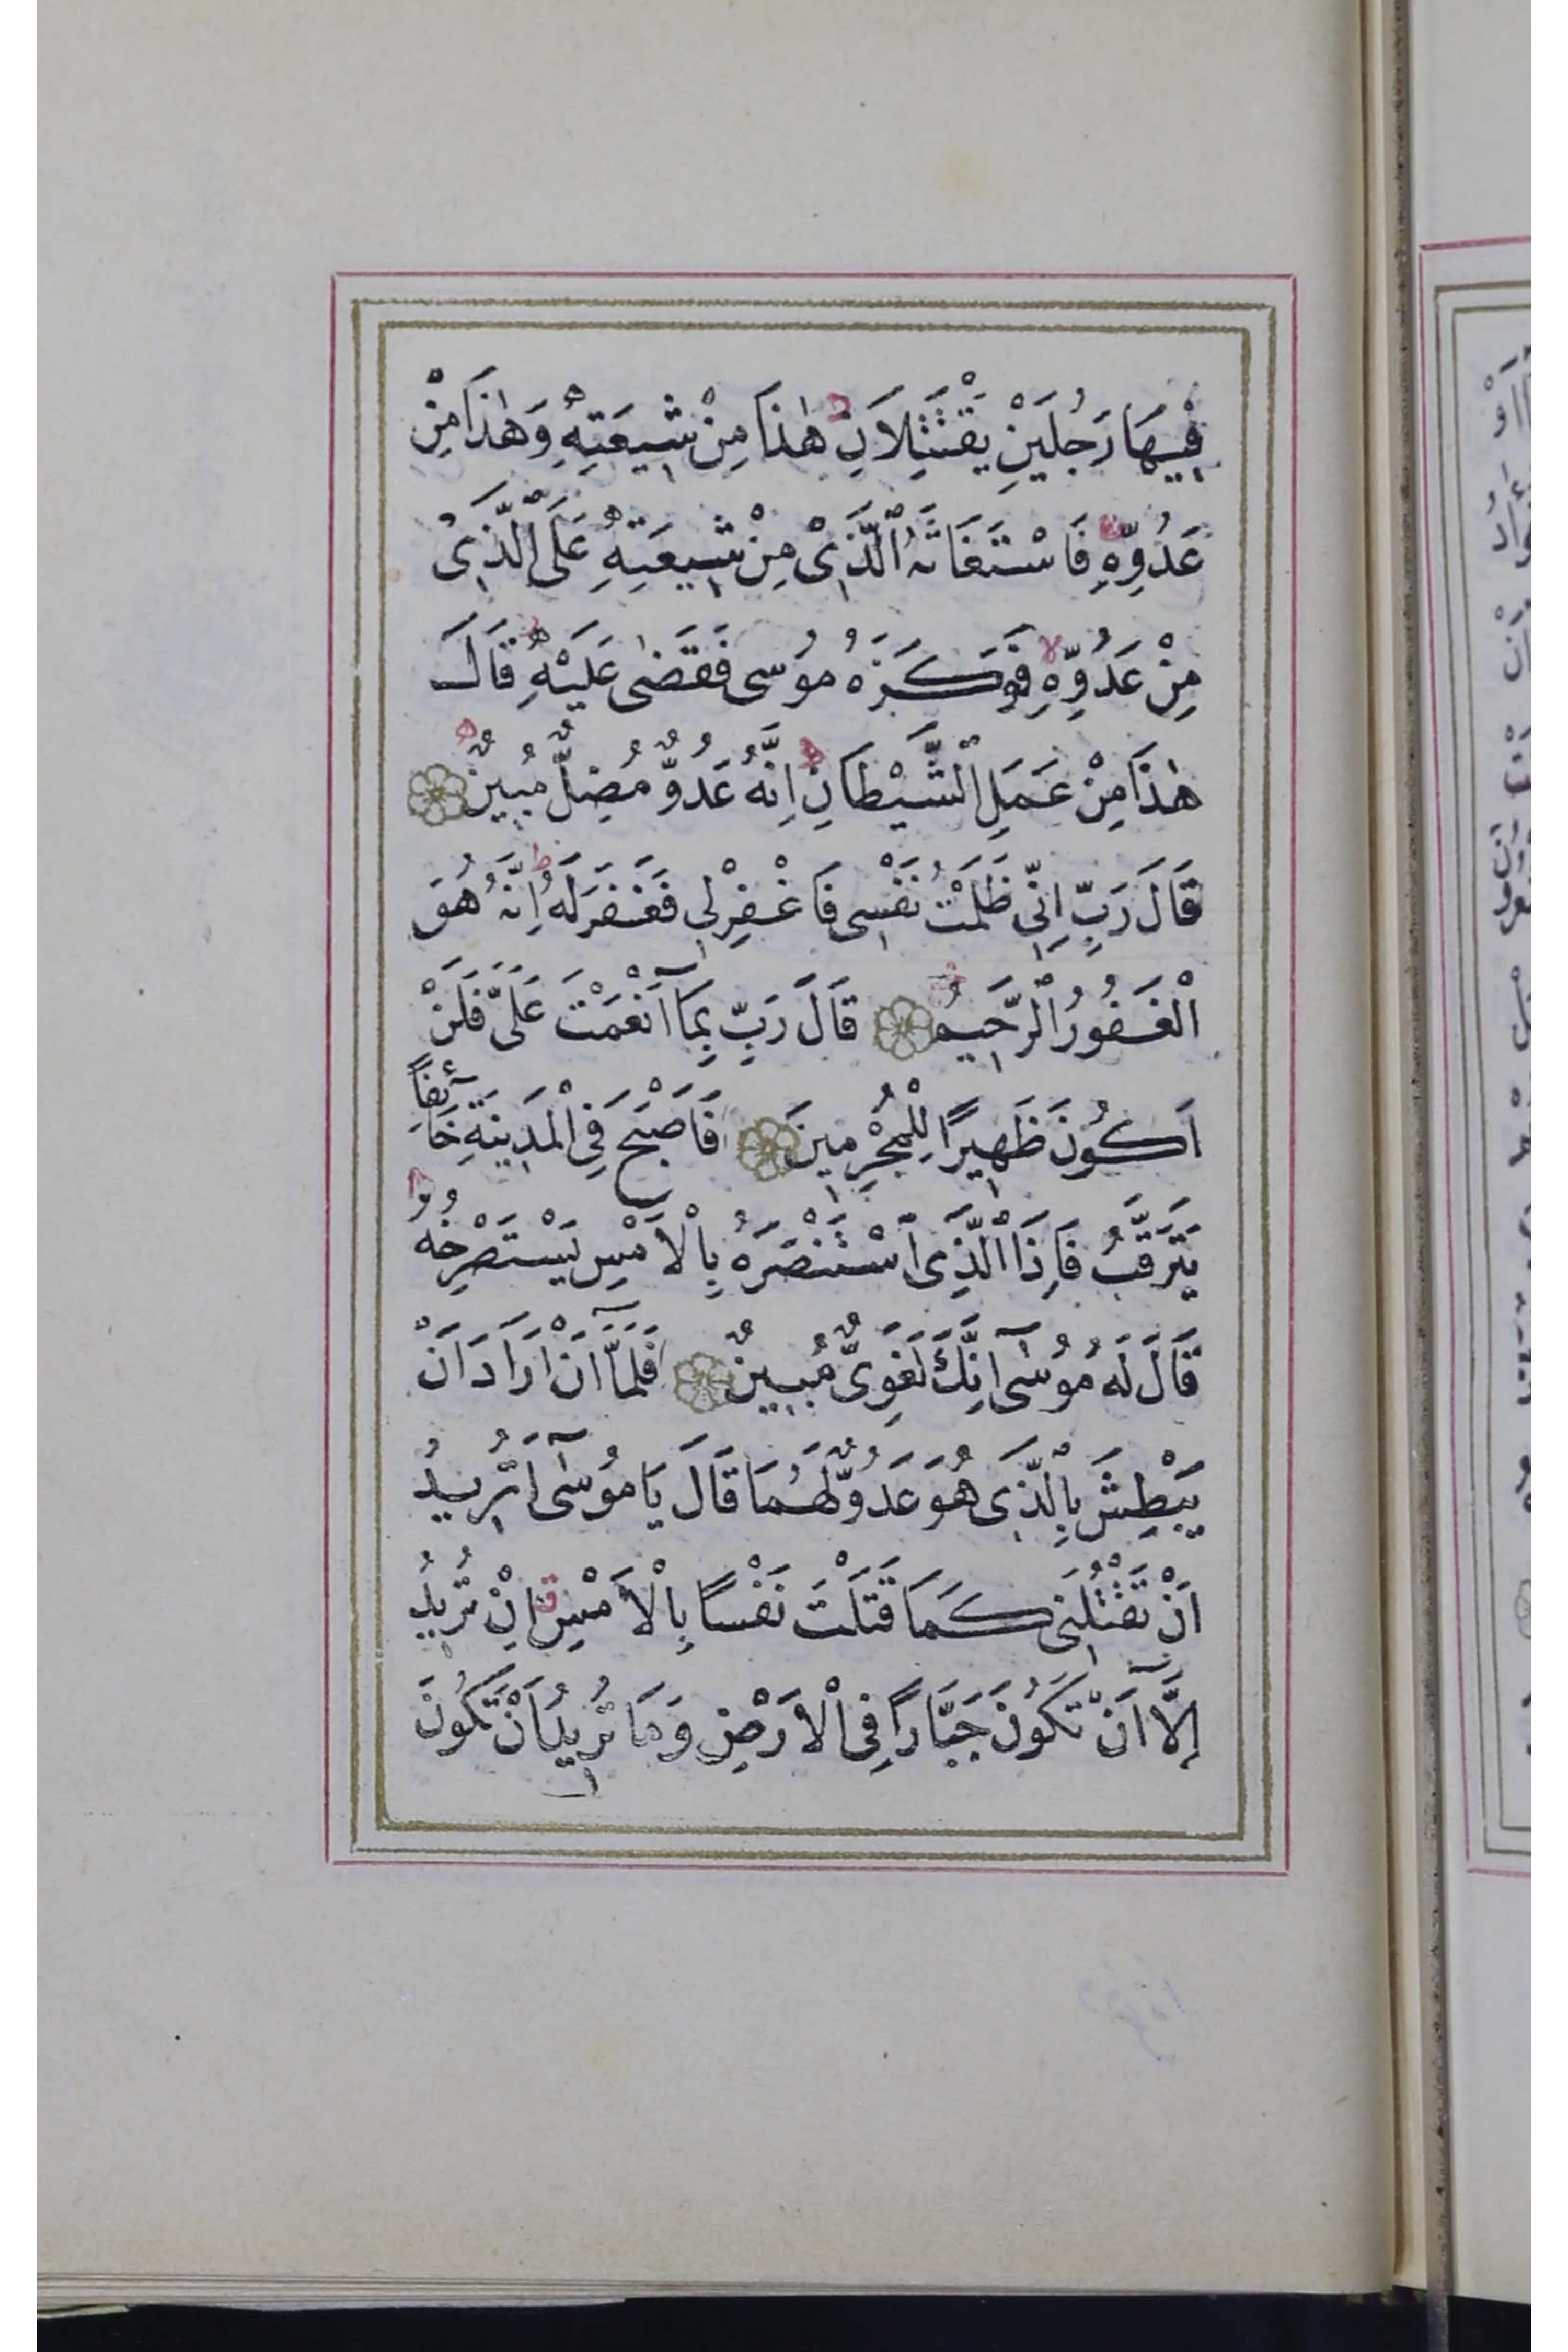 فِيهَا رَجُلَيْنِ يَقْتَتِلَانِ هٰذَا مِنْ شِيعَتِهِ وَهٰذَا مِنْ
عَدُوِّهِ فَاسْتَغَاثَهُ الَّذِى مِنْ شِيعَتِهِ عَلَى الَّذِى
مِنْ عَدُوِّهِ فَوَكَزَهُ مُوسٰى فَقَضٰى عَلَيْهِ قَالَ
هٰذَا مِنْ عَمَلِ الشَّيْطَانِ اِنَّهُ عَدُوٌّ مُضِلٌّ مُبِينٌ
قَالَ رَبِّ اِنِّى ظَلَمْتُ نَفْسِى فَاغْفِرْلِى فَغَفَرَ لَهُ اِنَّهُ هُوَ
الْغَفُورُ الرَّحِيمُ قَالَ رَبِّ بِمَآ اَنْعَمْتَ عَلَىَّ فَلَنْ
اَكُونَ ظَهِيرًا لِلْمُجْرِمِينَ فَاَصْبَحَ فِى الْمَدِينَةِ خَآئِفًا
يَتَرَقَّبُ فَاِذَا الَّذِى اسْتَنْصَرَهُ بِالْاَمْسِ يَسْتَصْرِخُهُ
قَالَ لَهُ مُوسٰٓى اِنَّكَ لَغَوِىٌّ مُبِينٌ فَلَمَّآ اَنْ اَرَادَ اَنْ
يَبْطِشَ بِالَّذِى هُوَ عَدُوٌّ لَهُمَا قَالَ يَا مُوسٰٓى اَتُرِيدُ
اَنْ تَقْتُلَنِى كَمَا قَتَلْتَ نَفْسًا بِالْاَمْسِ اِنْ تُرِيدُ
اِلَّآ اَنْ تَكُونَ جَبَّارًا فِى الْاَرْضِ وَمَا تُرِيدُ اَنْ تَكُونَ